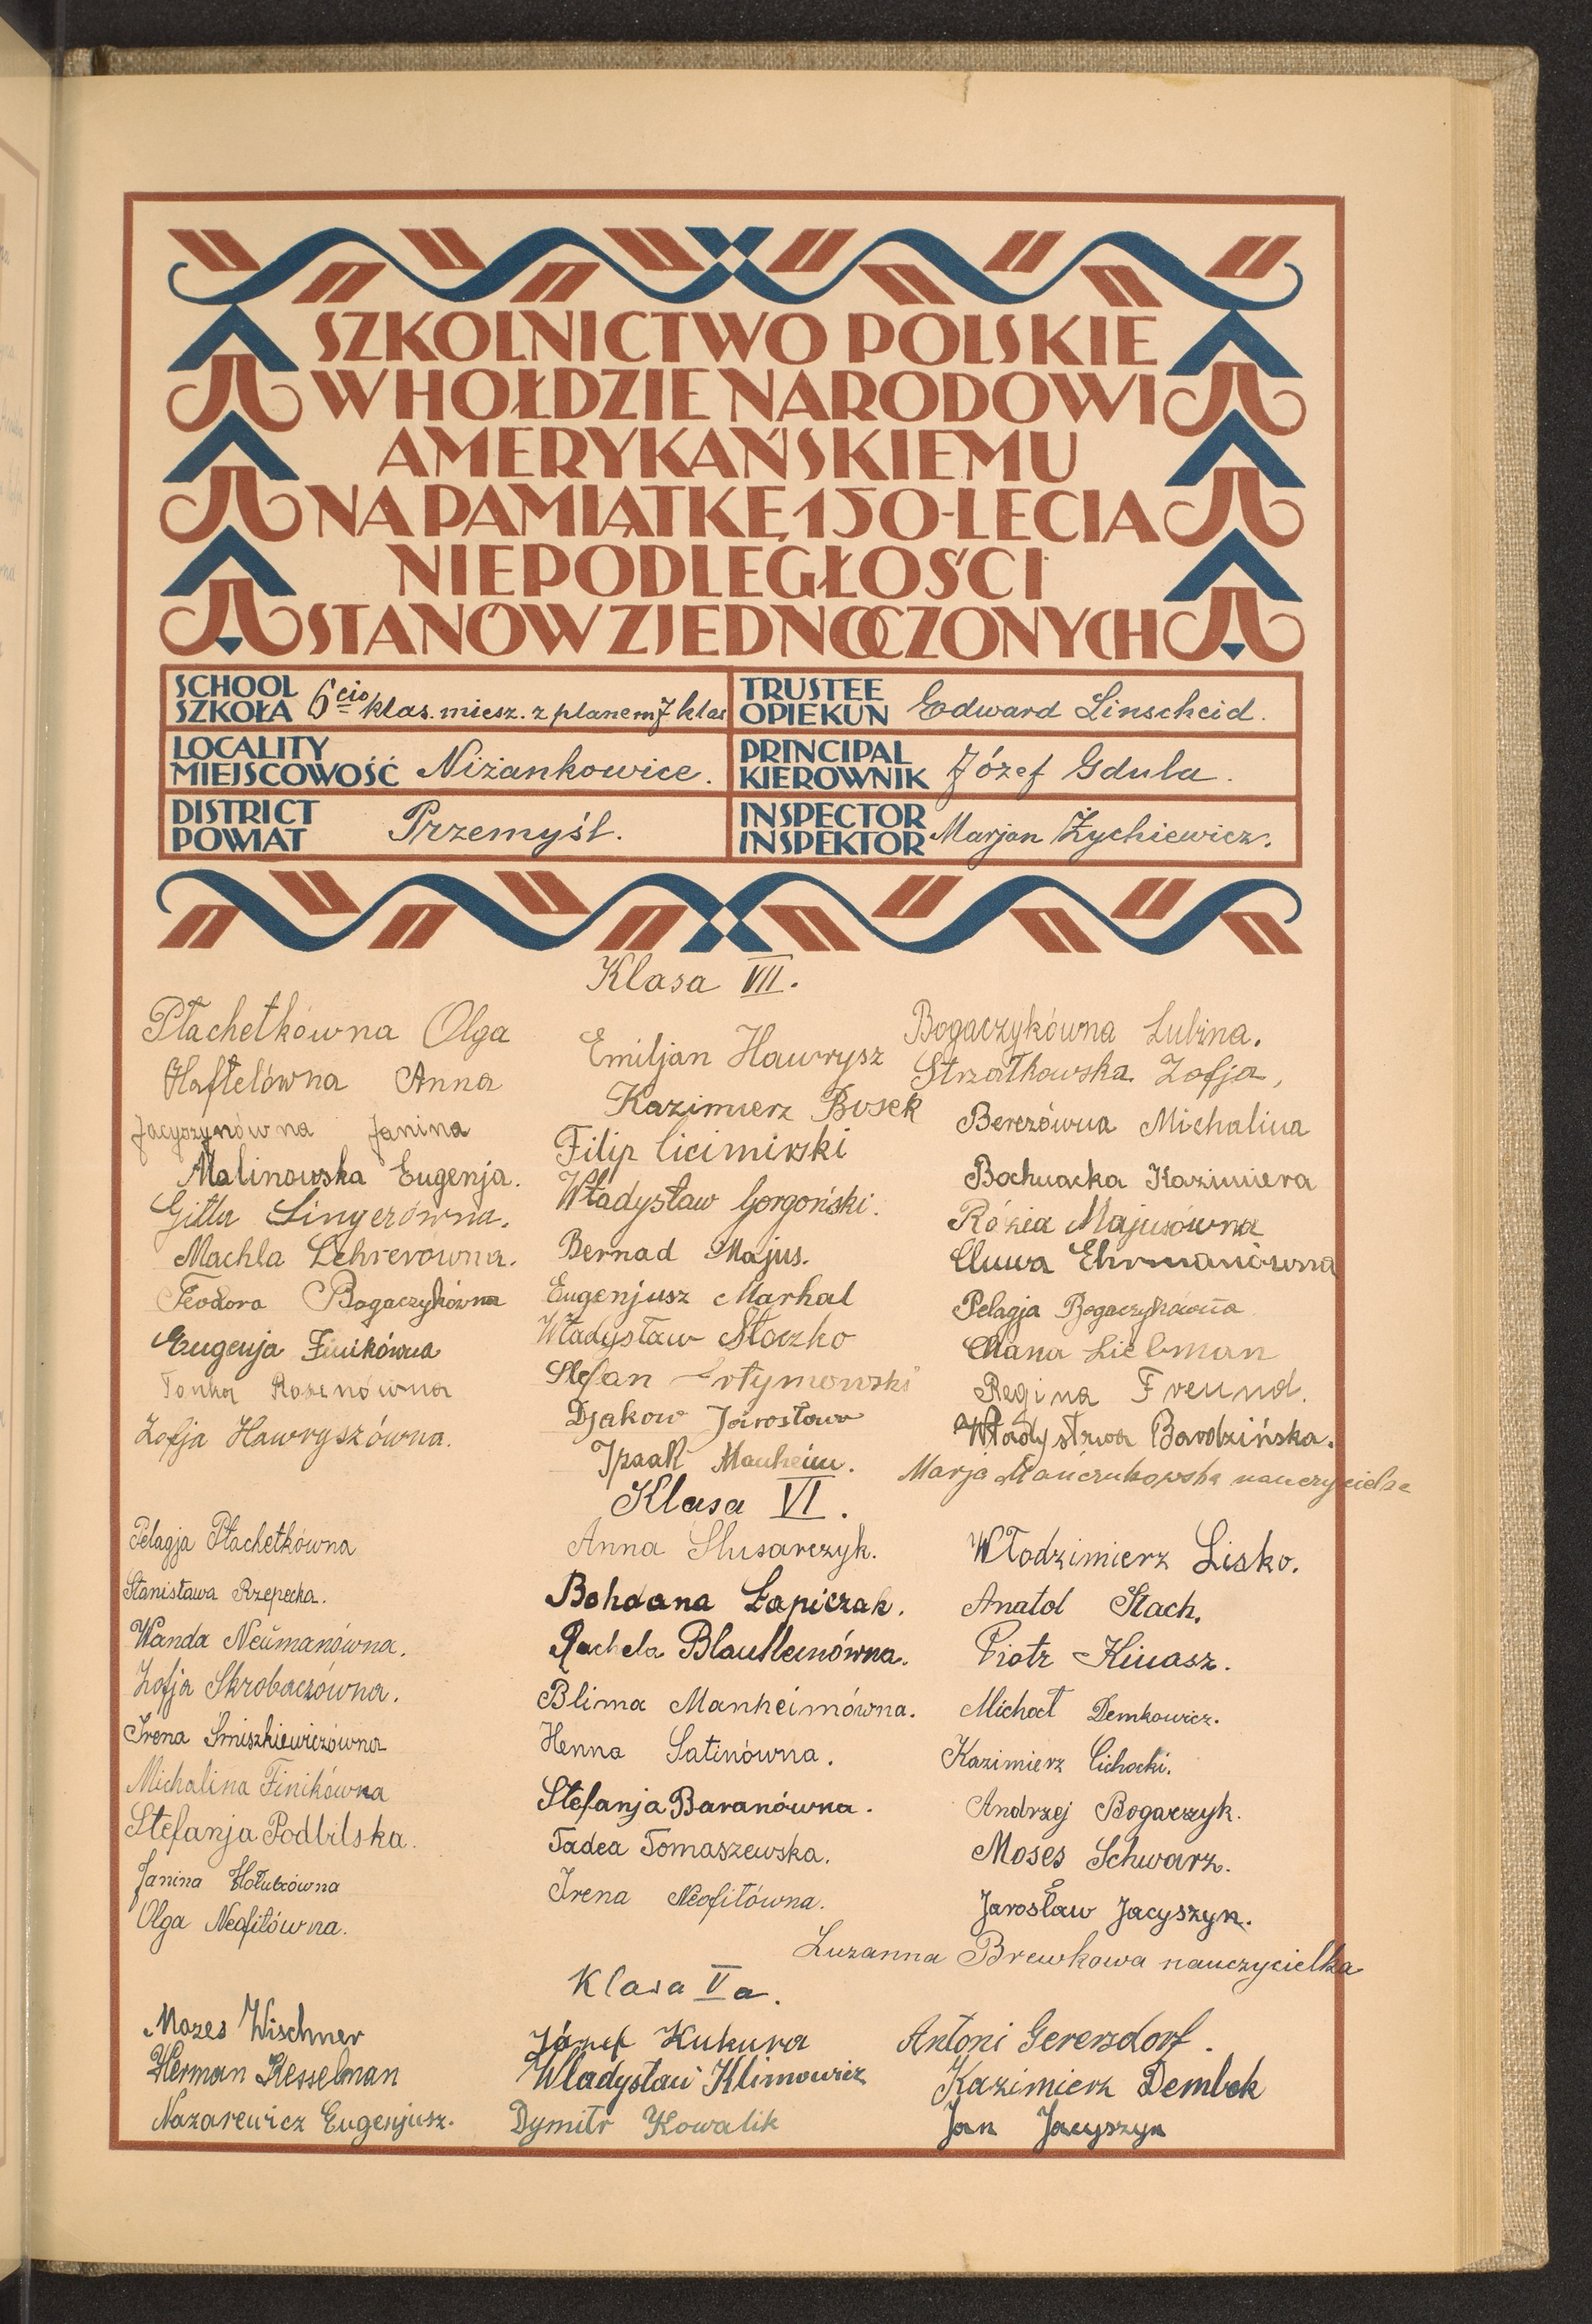 SZKOLNICTWO POLSKIE
W HOŁDZIE NARODOWI
AMERYKAŃSKIEMU
NA PAMIĄTKĘ 150-LECIA
NIEPODLEGŁOŚCI
STANÓW ZJEDNOCZONYCH
SCHOOL
SZKOŁA 6cio klas. miesz. z planem 7 klas
TRUSTEE
OPIEKUN Edward Linscheid.
LOCALITY
MIEJSCOWOŚĆ Niżankowice.
PRINCIPAL
KIEROWNIK Józef Gdula.
DISTRICT
POWIAT Przemyśl.
INSPECTOR
INSPEKTOR Marjan Żychiewicz.
Klasa VII.
Płachetkówna Olga
Haftelówna Anna
Jacyszynówna Janina
Malinowska Eugenja.
Gitla Singerówna.
Machla Lehrerówna.
Teodora Bogaczykówna
Eugenja Finikówna
Tonka Rozenówna
Zofja Hawryszówna.
Emiljan Hawrysz
Kazimierz Bosek
Filip Cicimirski
Władysław Gorgoński.
Bernad Majus.
Eugenjusz Markal
Władysław Stoczko
Stefan
Djakow Jarosław
Izaak Manheim.
Bogaczykówna Lubina.
Strzałkowska Zofja,
Berezówna Michalina
Bochnacka Kazimiera
Rózia Majusówna
Ehrmanówna
Pelagja Bogaczykówna
Chana Liebman
Regina Freund.
Władysława Barodzińska.
Marja nauczycielka
Klasa VI.
Pelagja Płachetkówna
Stanisława Rzepecka.
Wanda Neumanówna.
Zofja Skrobaczówna.
Irena Śmiszkiewiczówna
Michalina Finikówna
Stefanja Podbilska.
Janina Hołubówna
Olga Neofitówna.
Anna Slusarczyk.
Bohdana Łapiczak.
Rachela Blausteinówna.
Blima Manheimówna.
Henna Satinówna.
Stefanja Baranówna.
Tadea Tomaszewska.
Irena Neofitówna.
Włodzimierz Lisko.
Anatol Stach.
Piotr Kinasz.
Michał Demkowicz.
Kazimierz Cichocki.
Andrzej Bogaczyk.
Moses Schwarz.
Jarosław Jacyszyn.
Zuzanna Brewkowa nauczycielka
Klasa Va.
Mozes Wischner
Herman Kesselman
Nazarewicz Eugenjusz.
Józef Kukura
Wladysław Klimowicz
Dymitr Kowalik
Antoni Gerersdorf.
Kazimierz Dembek
Jan Jacyszyn